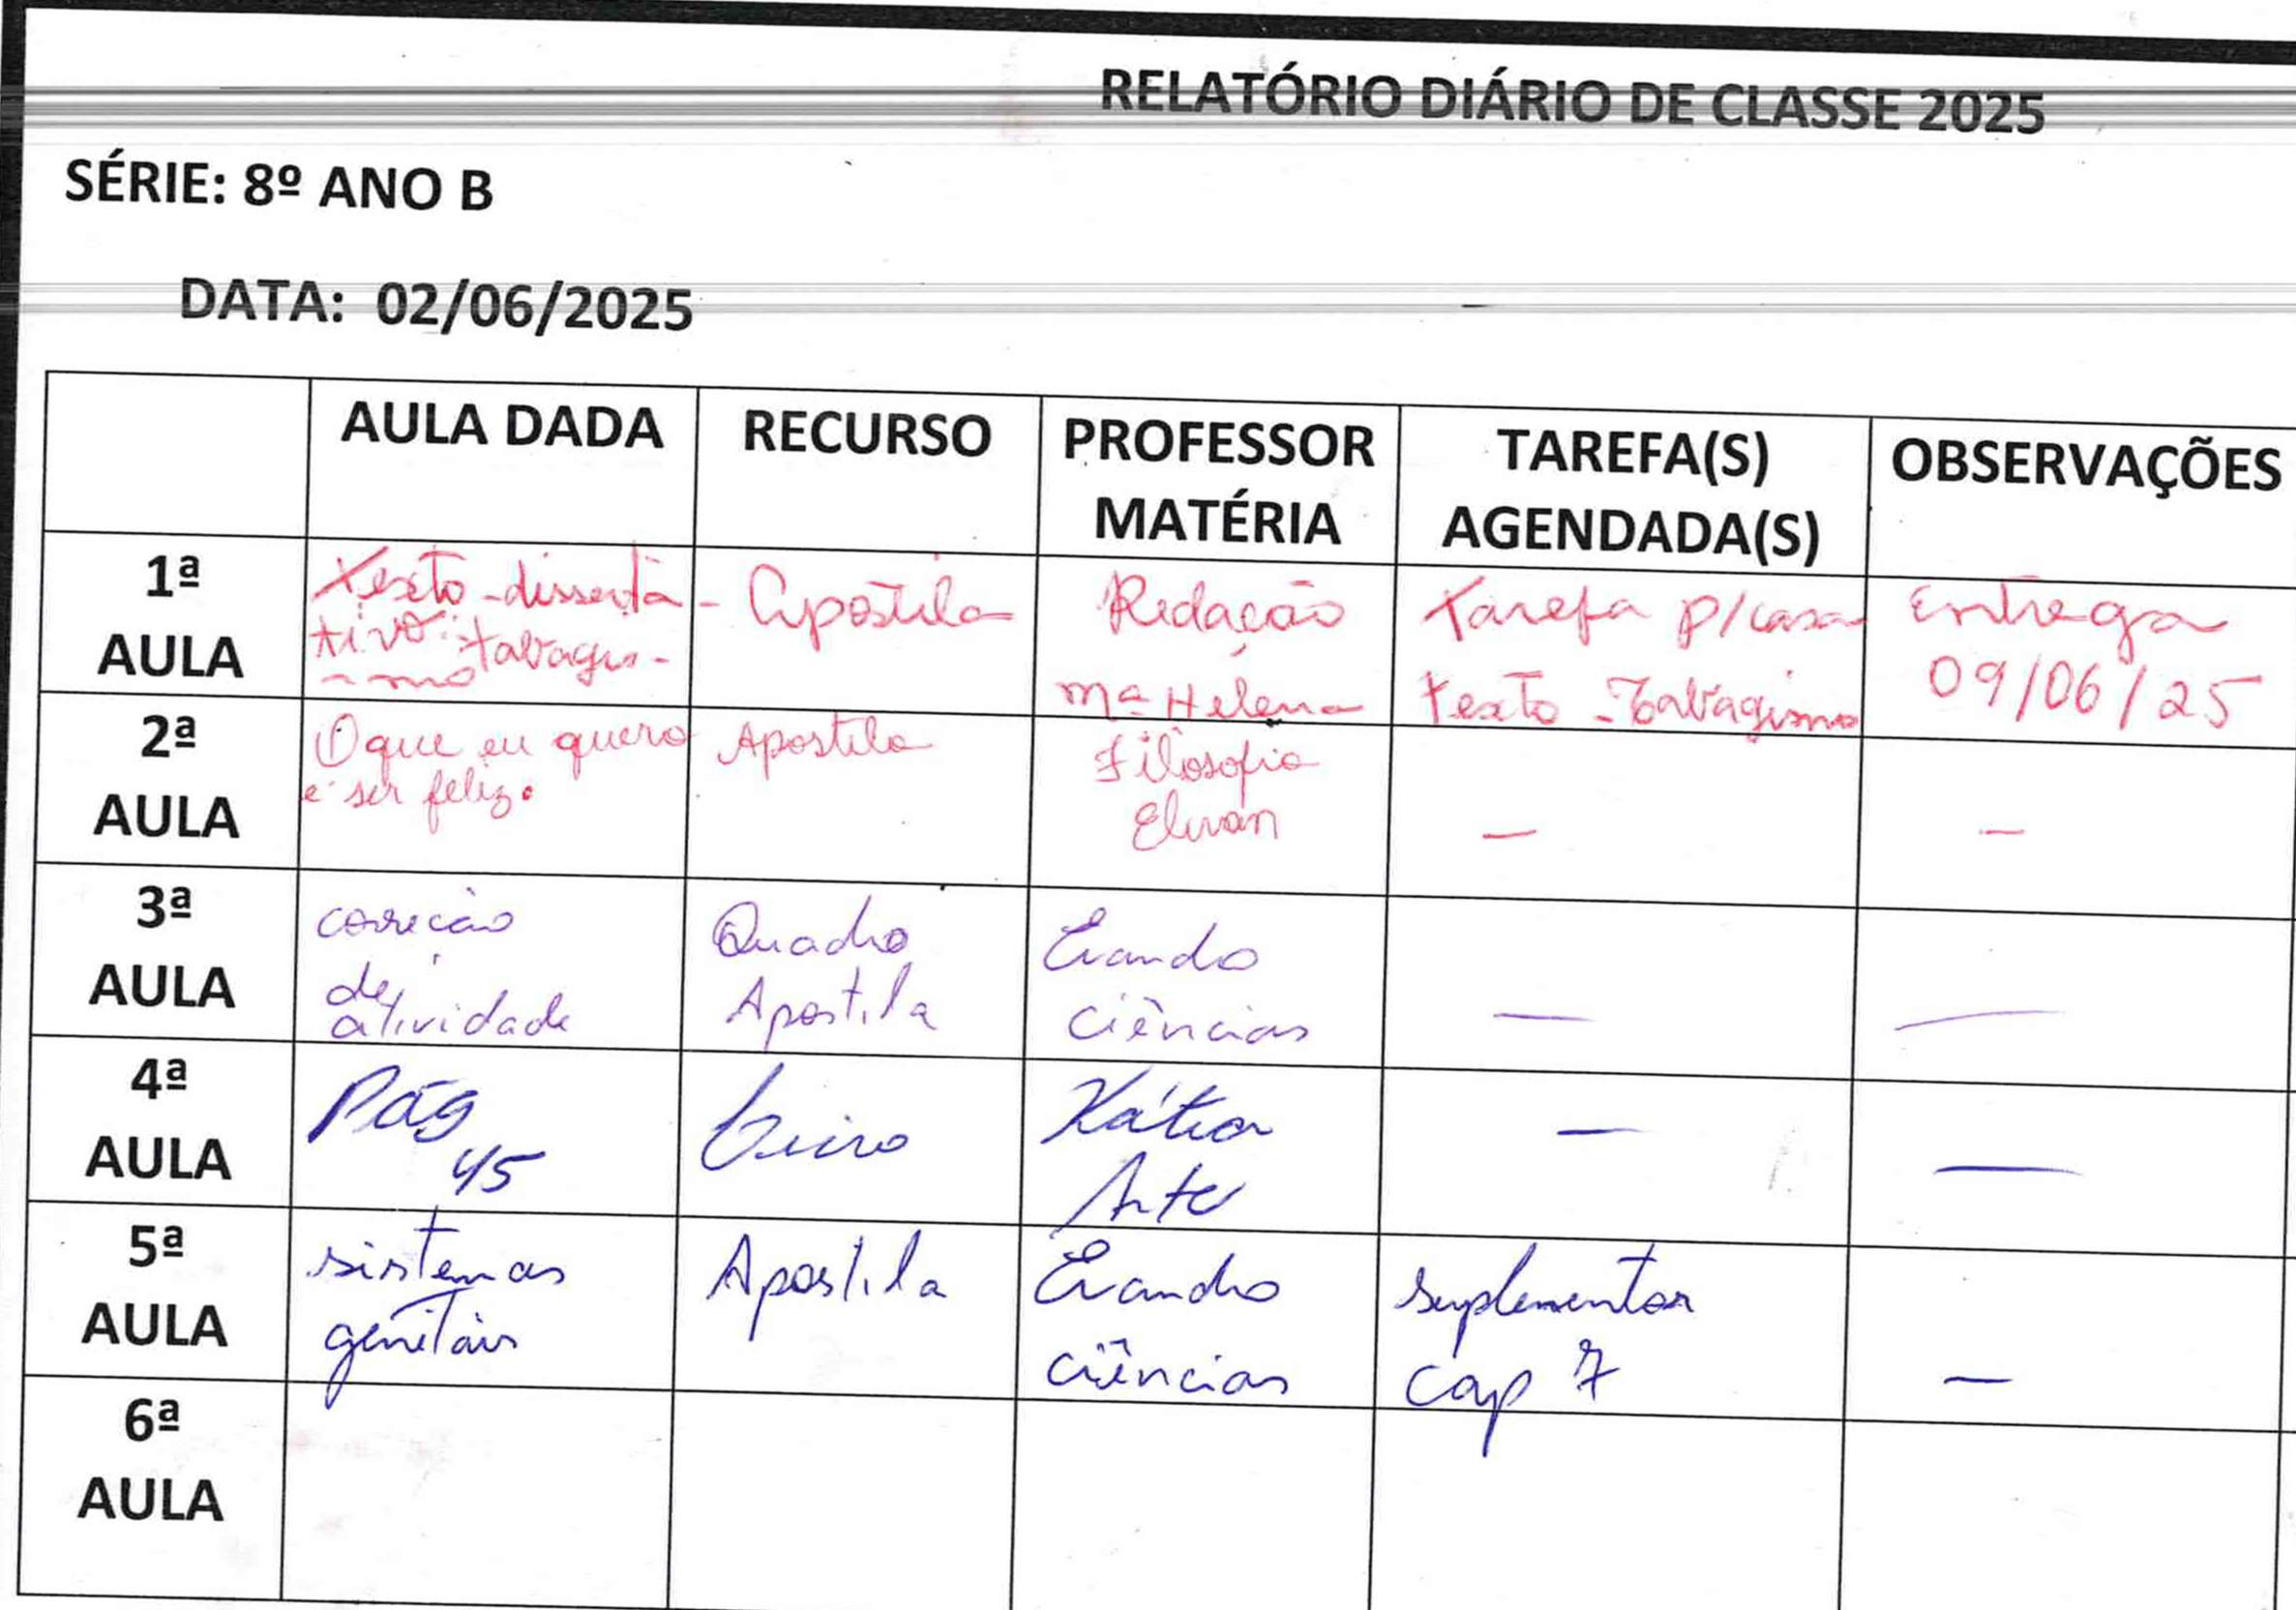 RELATÓRIO DIÁRIO DE CLASSE 2025
SÉRIE: 8º ANO B
DATA: 02/06/2025
AULA DADA
RECURSO
PROFESSOR
MATÉRIA
TAREFA(S)
AGENDADA(S)
OBSERVAÇÕES
1ª
AULA
Texto-disserta-
tivo: tabagis-
-mo
Apostila
Redação
Mª Helena
Tarefa p/casa
texto - Tabagismo
Entrega
09/06/25
2ª
AULA
O que eu quero
é ser feliz.
Apostila
Filosofia
Elivan
—
—
3ª
AULA
correção
de
atividade
Quadro
Apostila
Evandro
Ciências
—
—
4ª
AULA
Pág
45
Livro
Kátia
Arte
—
—
5ª
AULA
sistemas
genitais
Apostila
Evandro
Ciências
suplementar
cap 7
—
6ª
AULA